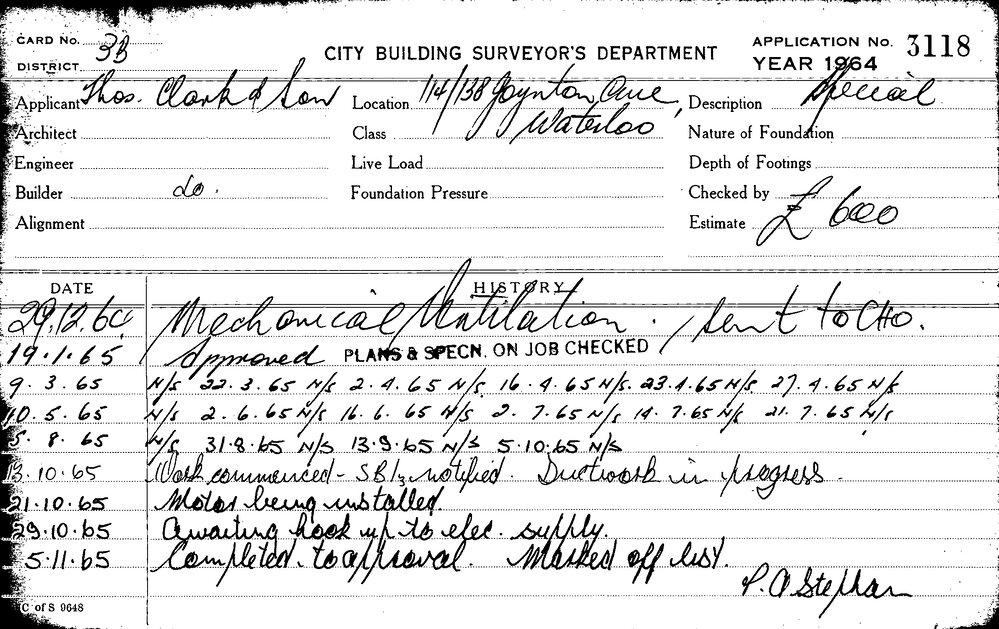 CARD No. 3B
DISTRICT
CITY BUILDING SURVEYOR'S DEPARTMENT
APPLICATION No. 3118
YEAR 1964
Applicant Thos. Clark & Son Location 114/138 Joynton Ave, Description Special
Architect Class Waterloo Nature of Foundation
Engineer Live Load Depth of Footings
Builder do. Foundation Pressure Checked by
Alignment Estimate £ 600
DATE HISTORY
29.12.64 Mechanical Ventilation. sent to CHO.
19.1.65 Approved PLANS & SPECN. ON JOB CHECKED
9.3.65 N/S 22.3.65 N/S 2.4.65 N/S. 16.4.65 N/S. 23.4.65 N/S. 27.4.65 N/S
10.5.65 N/S 2.6.65 N/S 16.6.65 N/S 2.7.65 N/S 14.7.65 N/S 21.7.65 N/S
5.8.65 N/S 31.8.65 N/S 13.9.65 N/S 5.10.65 N/S
13.10.65 Work commenced - notified. Ductwork in progress.
21.10.65 Motor being installed.
29.10.65 Awaiting hook up to elec. supply.
5.11.65 Completed to approval. Marked off list.
P. A Stephan
C of S 9648